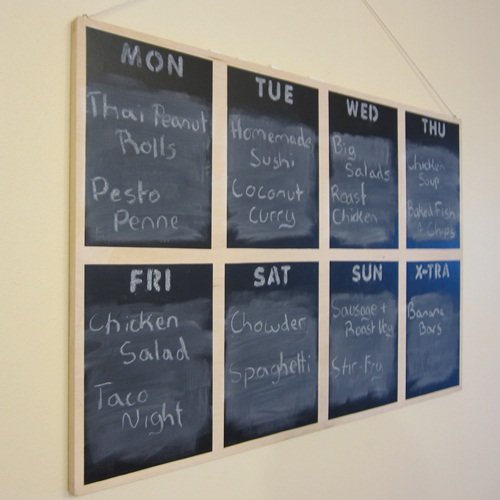 MON
Thai Peanut
Rolls
Pesto
Penne
TUE
Homemade
Sushi
Coconut
Curry
WED
Big
Salads
Roast
Chicken
THU
Chicken
Soup
Baked Fish
& Chips
FRI
Chicken
Salad
Taco
Night
SAT
Chowder
Spaghetti
SUN
Sausage +
Roast Veg
Stir-Fry
X-TRA
Banana
Bars